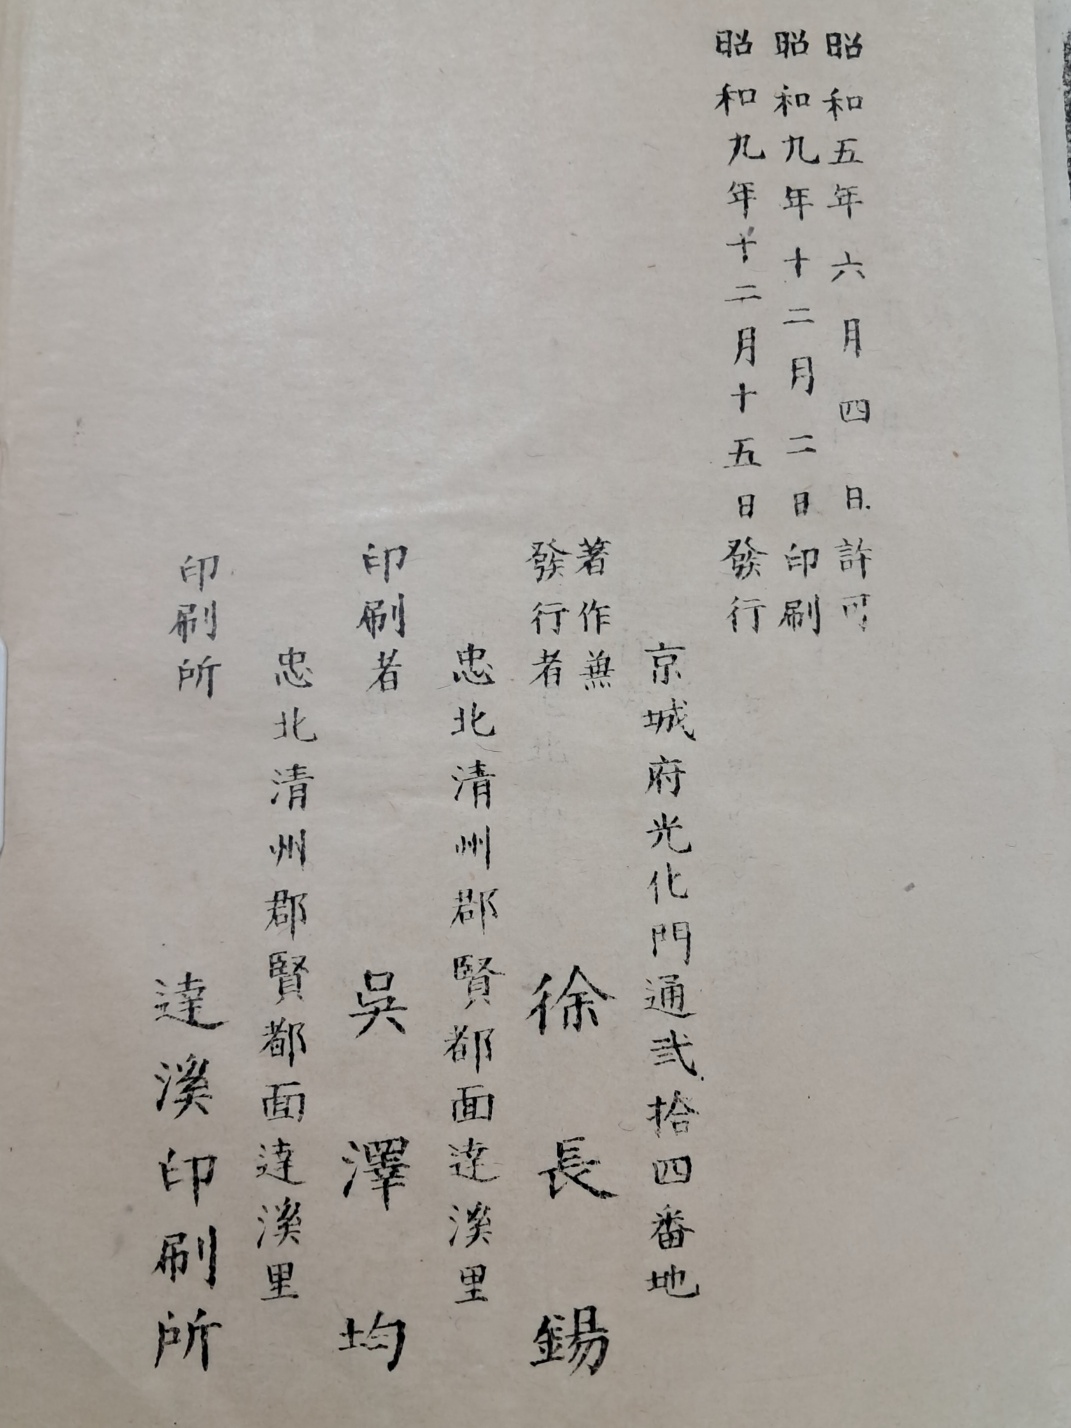 昭和五年六月四日許可
昭和九年十二月二日印刷
昭和九年十二月十五日發行
京城府光化門通弐拾四番地
著作兼
發行者 徐長錫
忠北清州郡賢都面達溪里
印刷者 吳澤均
忠北清州郡賢都面達溪里
印刷所 達溪印刷所